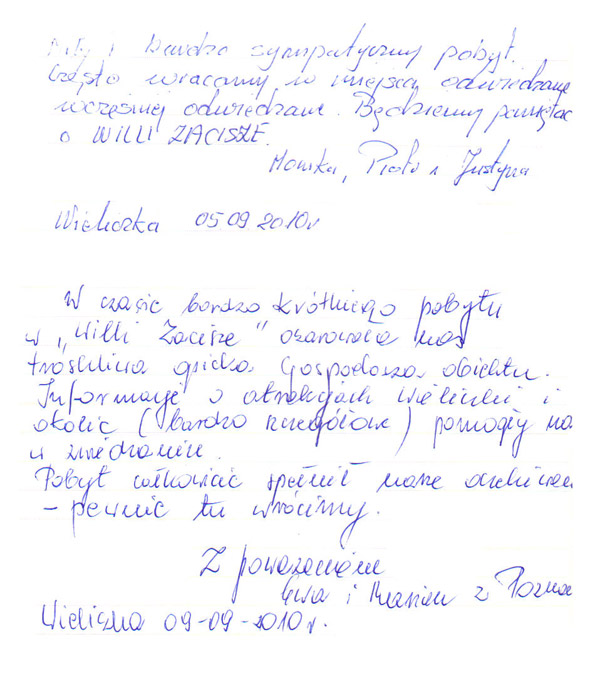 Miły i bardzo sympatyczny pobyt.
Często wracamy w miejsca odwiedzane
wcześniej odwiedzane. Będziemy pamiętać
o WILLI ZACISZE.
Monika, Piotr i Justyna
Wieliczka 05 09 2010r
W czasie bardzo krótkiego pobytu
w „Willi Zacisze" oczarowała nas
troskliwa opieka Gospodarza obiektu.
Informacje o atrakcjach Wieliczki i
okolic (bardzo szczegółowe) pomogły na
w zwiedzaniu.
Pobyt całkowicie spełnił nasze oczekiwan
- pewnie tu wrócimy.
Z poważaniem
Ewa i Marian z Pozna
Wieliczka 09-09-2010r.